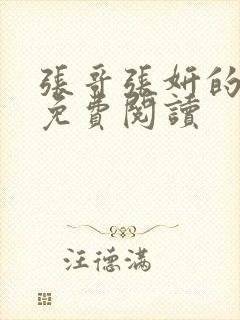 張哥張妍的
免費閱讀
汪德滿